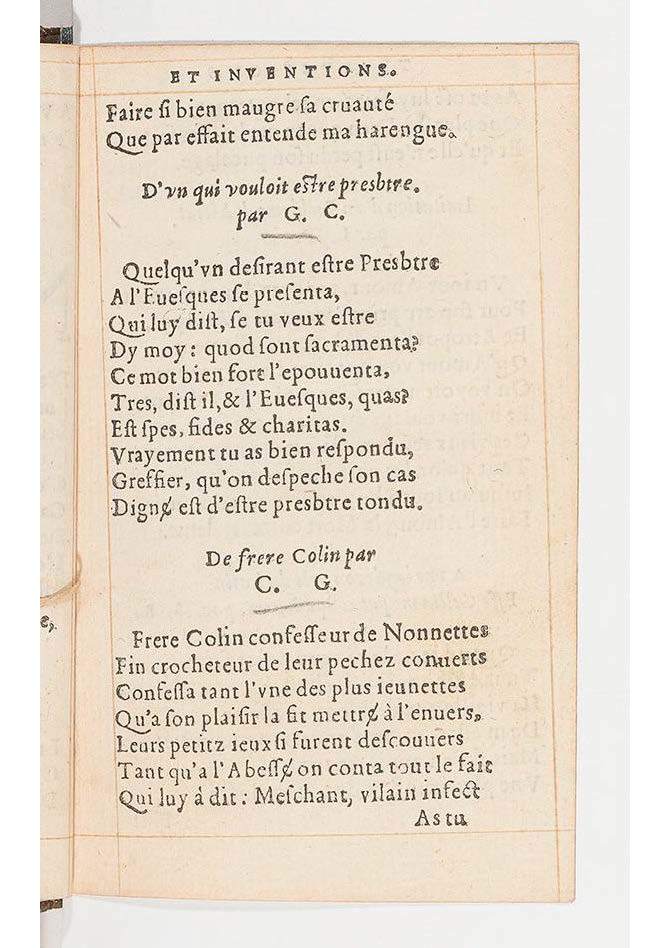 ET INVENTIONS.
Faire ſi bien maugre ſa cruauté
Que par effait entende ma harengue.
D'vn qui vouloit eſtre presbtre.
par G. C.
Quelqu'vn deſirant eſtre Presbtre
A l'Eueſques ſe preſenta,
Qui luy diſt, ſe tu veux eſtre
Dy moy: quod ſont ſacramenta?
Ce mot bien fort l'epouuenta,
Tres, diſt il, & l'Eueſques, quas?
Eſt ſpes, fides & charitas.
Vrayement tu as bien reſpondu,
Greffier, qu'on deſpeche ſon cas
Dignɇ eſt d'eſtre presbtre tondu.
De frere Colin par
C. G.
Frere Colin confeſſeur de Nonnettes
Fin crocheteur de leur pechez conuerts
Confeſſa tant l'vne des plus ieunettes
Qu'a ſon plaiſir la fit mettrɇ à l'enuers,
Leurs petitz ieux ſi furent deſcouuers
Tant qu'a l'Abeſſɇ on conta tout le fait
Qui luy à dit: Meſchant, vilain infect
As tu
e,